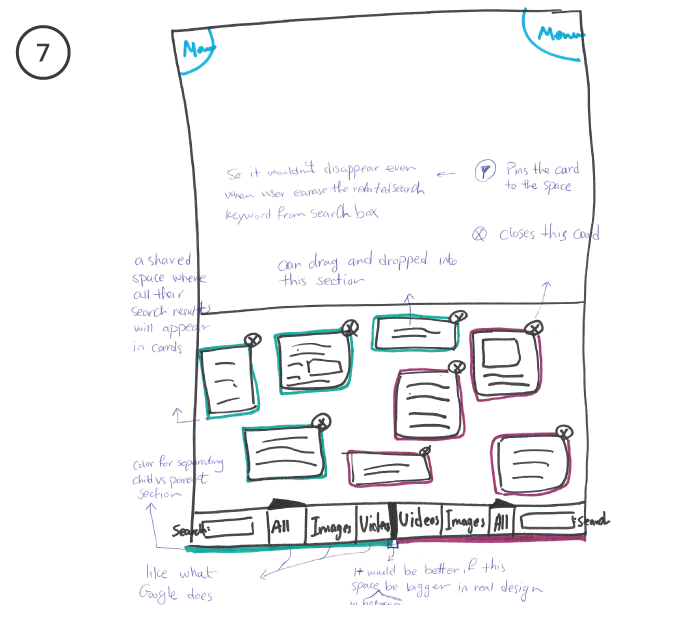 7
Menu
Menu
So it wouldn't disappear even
when user earase the related search
keyword from search box
Pins the card
to the space
closes this card
a shared
space where
all their
search results
will appear
in cards
can drag and dropped into
this section
Color for separating
child vs parent
section
Search:
All
Images
Videos
Videos
Images
All
:Search
like what
Google does
It would be better if this
space be bigger in real design
in between